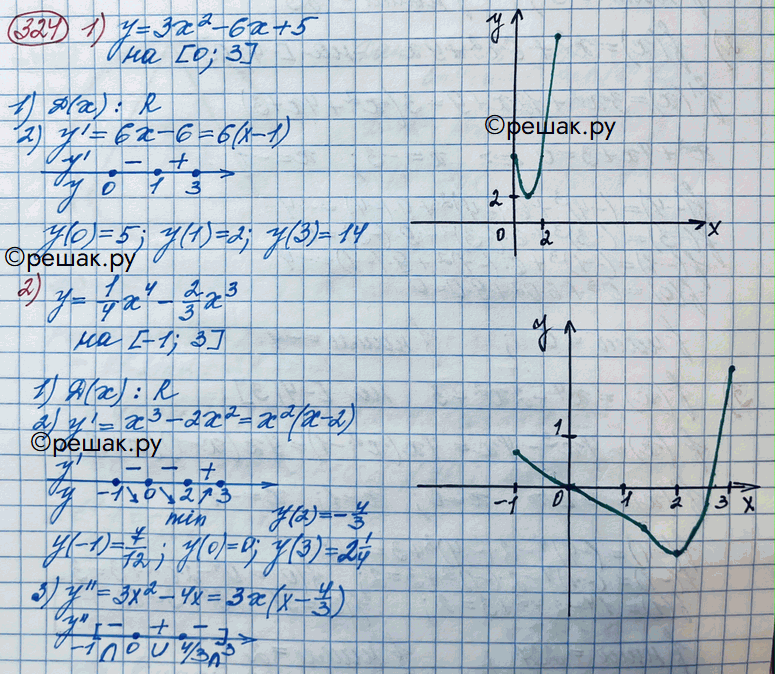 324 1) y = 3x² - 6x + 5
на [0; 3]
1) D(x): R
2) y' = 6x - 6 = 6(x - 1)
y' - +
y 0 1 3
y(0) = 5; y(1) = 2; y(3) = 14
©решак.ру
2) y = 1/4 x⁴ - 2/3 x³
на [-1; 3]
1) D(x): R
2) y' = x³ - 2x² = x²(x - 2)
©решак.ру
y' - - +
y -1 ↘ 0 ↘ 2 ↗ 3
min y(2) = -4/3
y(-1) = 7/12; y(0) = 0; y(3) = 2 1/4
3) y'' = 3x² - 4x = 3x(x - 4/3)
y'' [ - + - ]
-1 ∩ 0 ∪ 4/3 ∩ 3
y
©решак.ру
2
0 2 x
y
1
-1 0 1 2 3 x